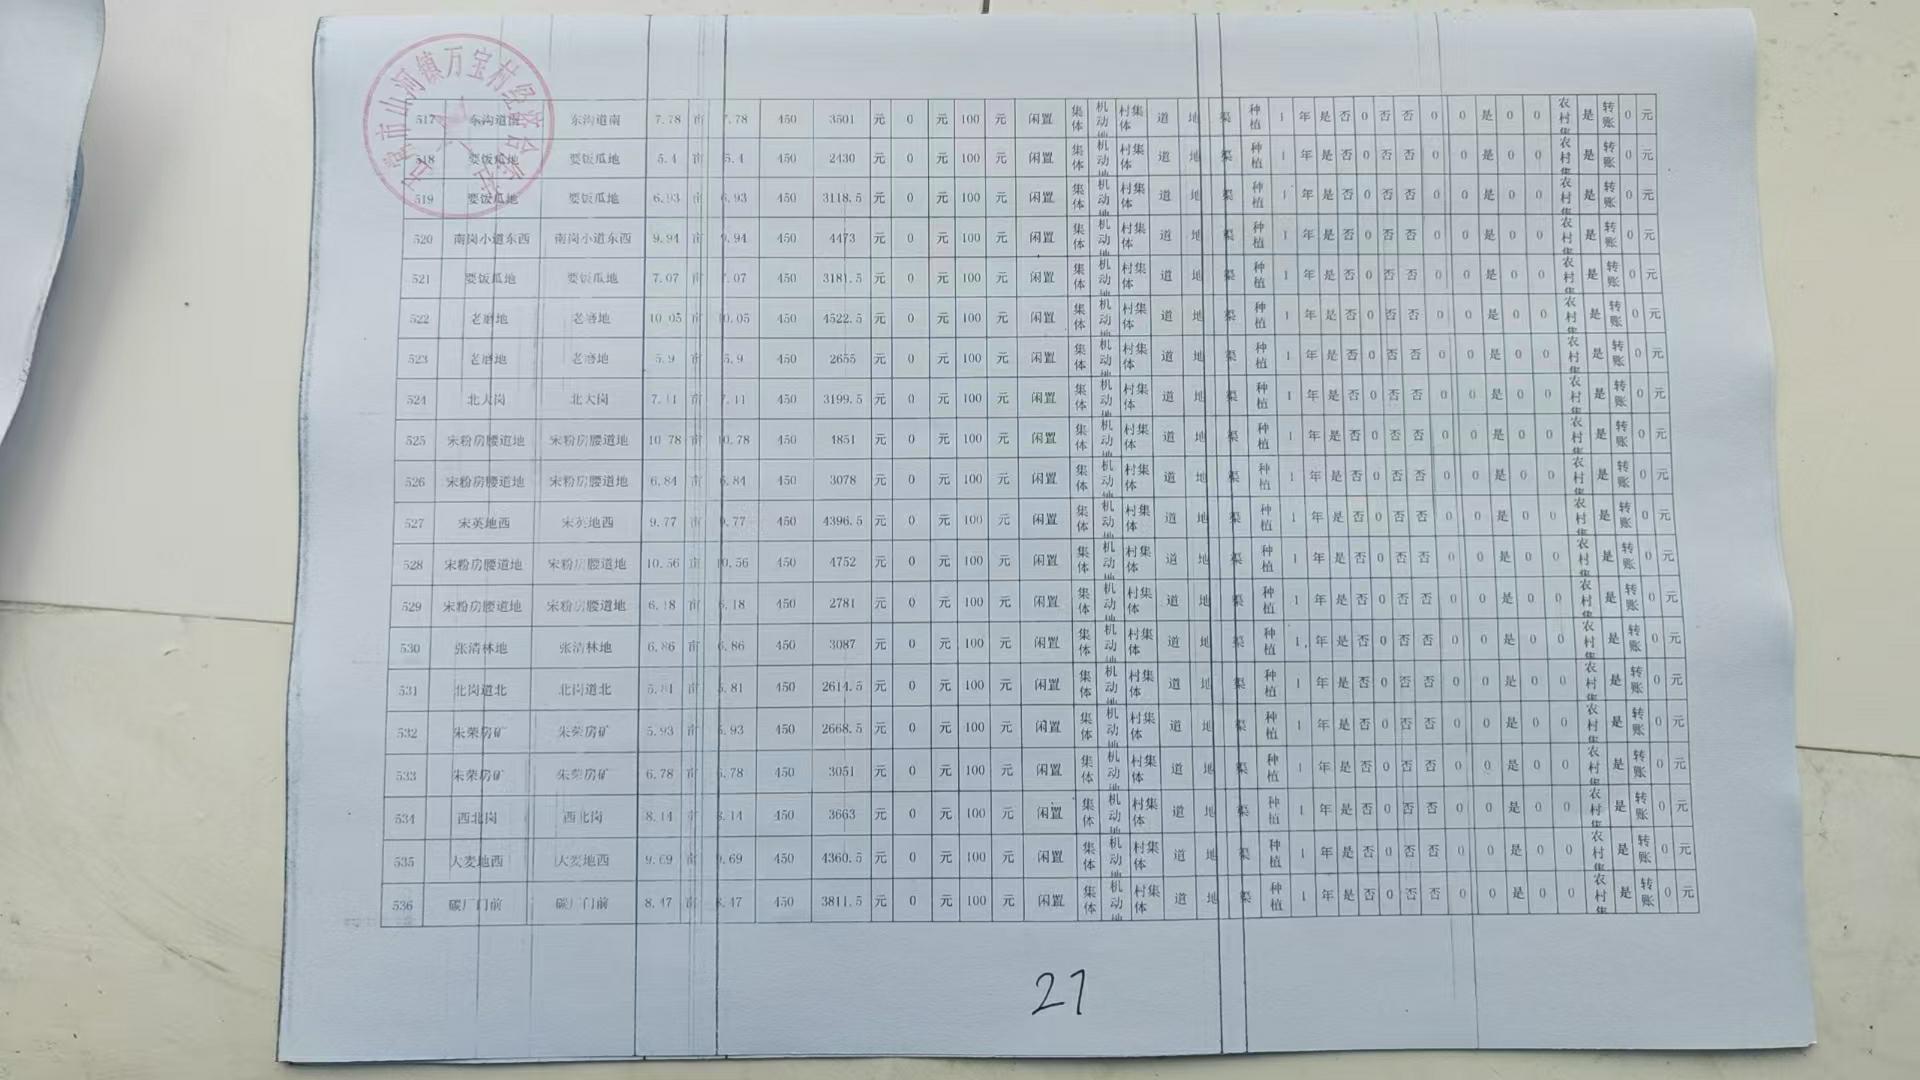 市山河镇万宝村经济合
517 东沟道南 东沟道南 7.78 亩 7.78 450 3501 元 0 元 100 元 闲置 集体 机动地 村集体 道 地 渠 种植 1 年 是 否 0 否 否 0 0 是 0 0 农村集 是 转账 0 元
518 要饭瓜地 要饭瓜地 5.4 亩 5.4 450 2430 元 0 元 100 元 闲置 集体 机动地 村集体 道 地 渠 种植 1 年 是 否 0 否 否 0 0 是 0 0 农村集 是 转账 0 元
519 要饭瓜地 要饭瓜地 6.93 亩 6.93 450 3118.5 元 0 元 100 元 闲置 集体 机动地 村集体 道 地 渠 种植 1 年 是 否 0 否 否 0 0 是 0 0 农村集 是 转账 0 元
520 南岗小道东西 南岗小道东西 9.94 亩 9.94 450 4473 元 0 元 100 元 闲置 集体 机动地 村集体 道 地 渠 种植 1 年 是 否 0 否 否 0 0 是 0 0 农村集 是 转账 0 元
521 要饭瓜地 要饭瓜地 7.07 亩 7.07 450 3181.5 元 0 元 100 元 闲置 集体 机动地 村集体 道 地 渠 种植 1 年 是 否 0 否 否 0 0 是 0 0 农村集 是 转账 0 元
522 老磨地 老磨地 10.05 亩 10.05 450 4522.5 元 0 元 100 元 闲置 集体 机动地 村集体 道 地 渠 种植 1 年 是 否 0 否 否 0 0 是 0 0 农村集 是 转账 0 元
523 老磨地 老磨地 5.9 亩 5.9 450 2655 元 0 元 100 元 闲置 集体 机动地 村集体 道 地 渠 种植 1 年 是 否 0 否 否 0 0 是 0 0 农村集 是 转账 0 元
524 北大岗 北大岗 7.11 亩 7.11 450 3199.5 元 0 元 100 元 闲置 集体 机动地 村集体 道 地 渠 种植 1 年 是 否 0 否 否 0 0 是 0 0 农村集 是 转账 0 元
525 宋粉房腰道地 宋粉房腰道地 10.78 亩 10.78 450 4851 元 0 元 100 元 闲置 集体 机动地 村集体 道 地 渠 种植 1 年 是 否 0 否 否 0 0 是 0 0 农村集 是 转账 0 元
526 宋粉房腰道地 宋粉房腰道地 6.84 亩 6.84 450 3078 元 0 元 100 元 闲置 集体 机动地 村集体 道 地 渠 种植 1 年 是 否 0 否 否 0 0 是 0 0 农村集 是 转账 0 元
527 宋英地西 宋英地西 9.77 亩 9.77 450 4396.5 元 0 元 100 元 闲置 集体 机动地 村集体 道 地 渠 种植 1 年 是 否 0 否 否 0 0 是 0 0 农村集 是 转账 0 元
528 宋粉房腰道地 宋粉房腰道地 10.56 亩 10.56 450 4752 元 0 元 100 元 闲置 集体 机动地 村集体 道 地 渠 种植 1 年 是 否 0 否 否 0 0 是 0 0 农村集 是 转账 0 元
529 宋粉房腰道地 宋粉房腰道地 6.18 亩 6.18 450 2781 元 0 元 100 元 闲置 集体 机动地 村集体 道 地 渠 种植 1 年 是 否 0 否 否 0 0 是 0 0 农村集 是 转账 0 元
530 张清林地 张清林地 6.86 亩 6.86 450 3087 元 0 元 100 元 闲置 集体 机动地 村集体 道 地 渠 种植 1 年 是 否 0 否 否 0 0 是 0 0 农村集 是 转账 0 元
531 北岗道北 北岗道北 5.81 亩 5.81 450 2614.5 元 0 元 100 元 闲置 集体 机动地 村集体 道 地 渠 种植 1 年 是 否 0 否 否 0 0 是 0 0 农村集 是 转账 0 元
532 朱荣房矿 朱荣房矿 5.93 亩 5.93 450 2668.5 元 0 元 100 元 闲置 集体 机动地 村集体 道 地 渠 种植 1 年 是 否 0 否 否 0 0 是 0 0 农村集 是 转账 0 元
533 朱荣房矿 朱荣房矿 6.78 亩 6.78 450 3051 元 0 元 100 元 闲置 集体 机动地 村集体 道 地 渠 种植 1 年 是 否 0 否 否 0 0 是 0 0 农村集 是 转账 0 元
534 西北岗 西北岗 8.14 亩 8.14 450 3663 元 0 元 100 元 闲置 集体 机动地 村集体 道 地 渠 种植 1 年 是 否 0 否 否 0 0 是 0 0 农村集 是 转账 0 元
535 大麦地西 大麦地西 9.69 亩 9.69 450 4360.5 元 0 元 100 元 闲置 集体 机动地 村集体 道 地 渠 种植 1 年 是 否 0 否 否 0 0 是 0 0 农村集 是 转账 0 元
536 碳厂门前 碳厂门前 8.47 亩 8.47 450 3811.5 元 0 元 100 元 闲置 集体 机动地 村集体 道 地 渠 种植 1 年 是 否 0 否 否 0 0 是 0 0 农村集 是 转账 0 元
27